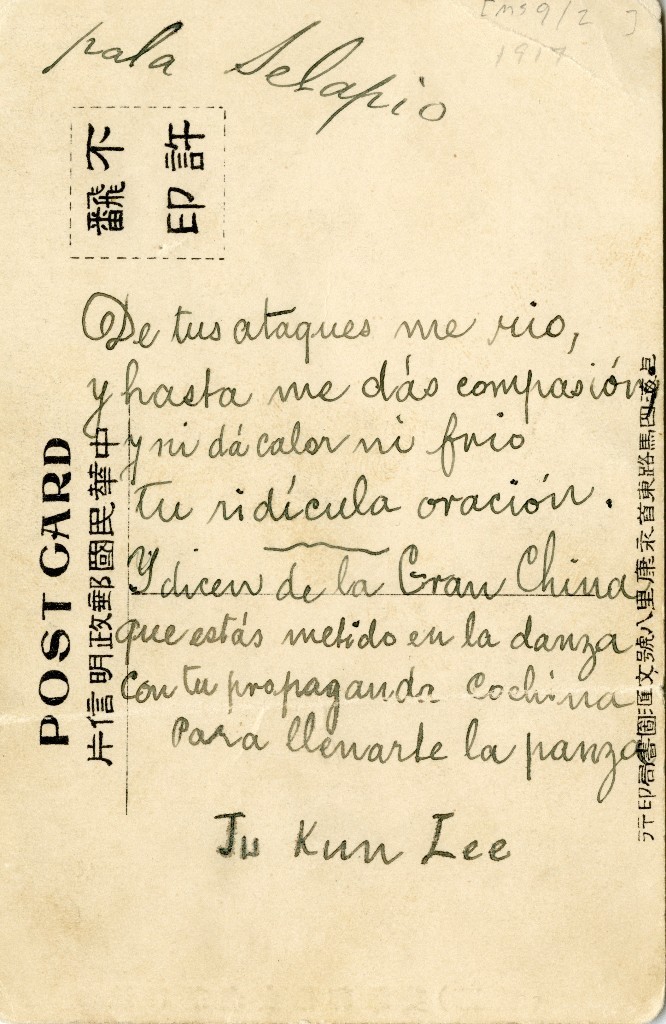 [ms 9/2 ]
1917
pala Selapio
不許
翻印
De tus ataques me rio,
y hasta me dás compasión,
y ni dá calor ni frio
tu ridícula oración.
Y dicen de la Gran China
que estás metido en la danza
con tu propaganda cochina
para llenarte la panza
Ju Kun Lee
POST CARD
中華民國郵政明信片
四馬路東首永康里八號文匯圖書局印行